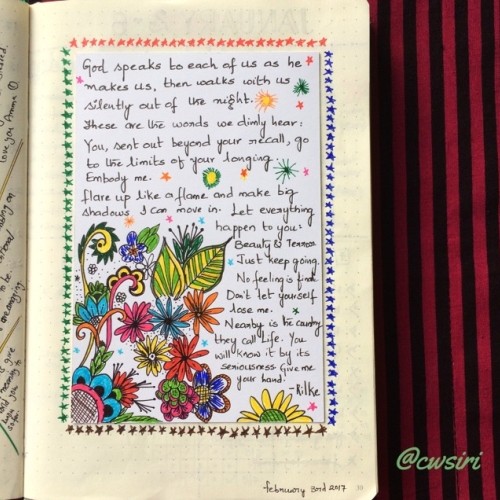 God speaks to each of us as he
makes us, then walks with us
silently out of the night.
These are the words we dimly hear:
You, sent out beyond your recall, go
to the limits of your longing
Embody me.
flare up like a flame and make big
shadows I can move in. Let everything
happen to you:
Beauty & Terror
Just keep going.
No feeling is final.
Don't let yourself
lose me.
Nearby is the country
they call Life. You
will know it by its
seriousness Give me
your hand."
-Rilke
february 3rd 2017
@cwsiri
love you Amma